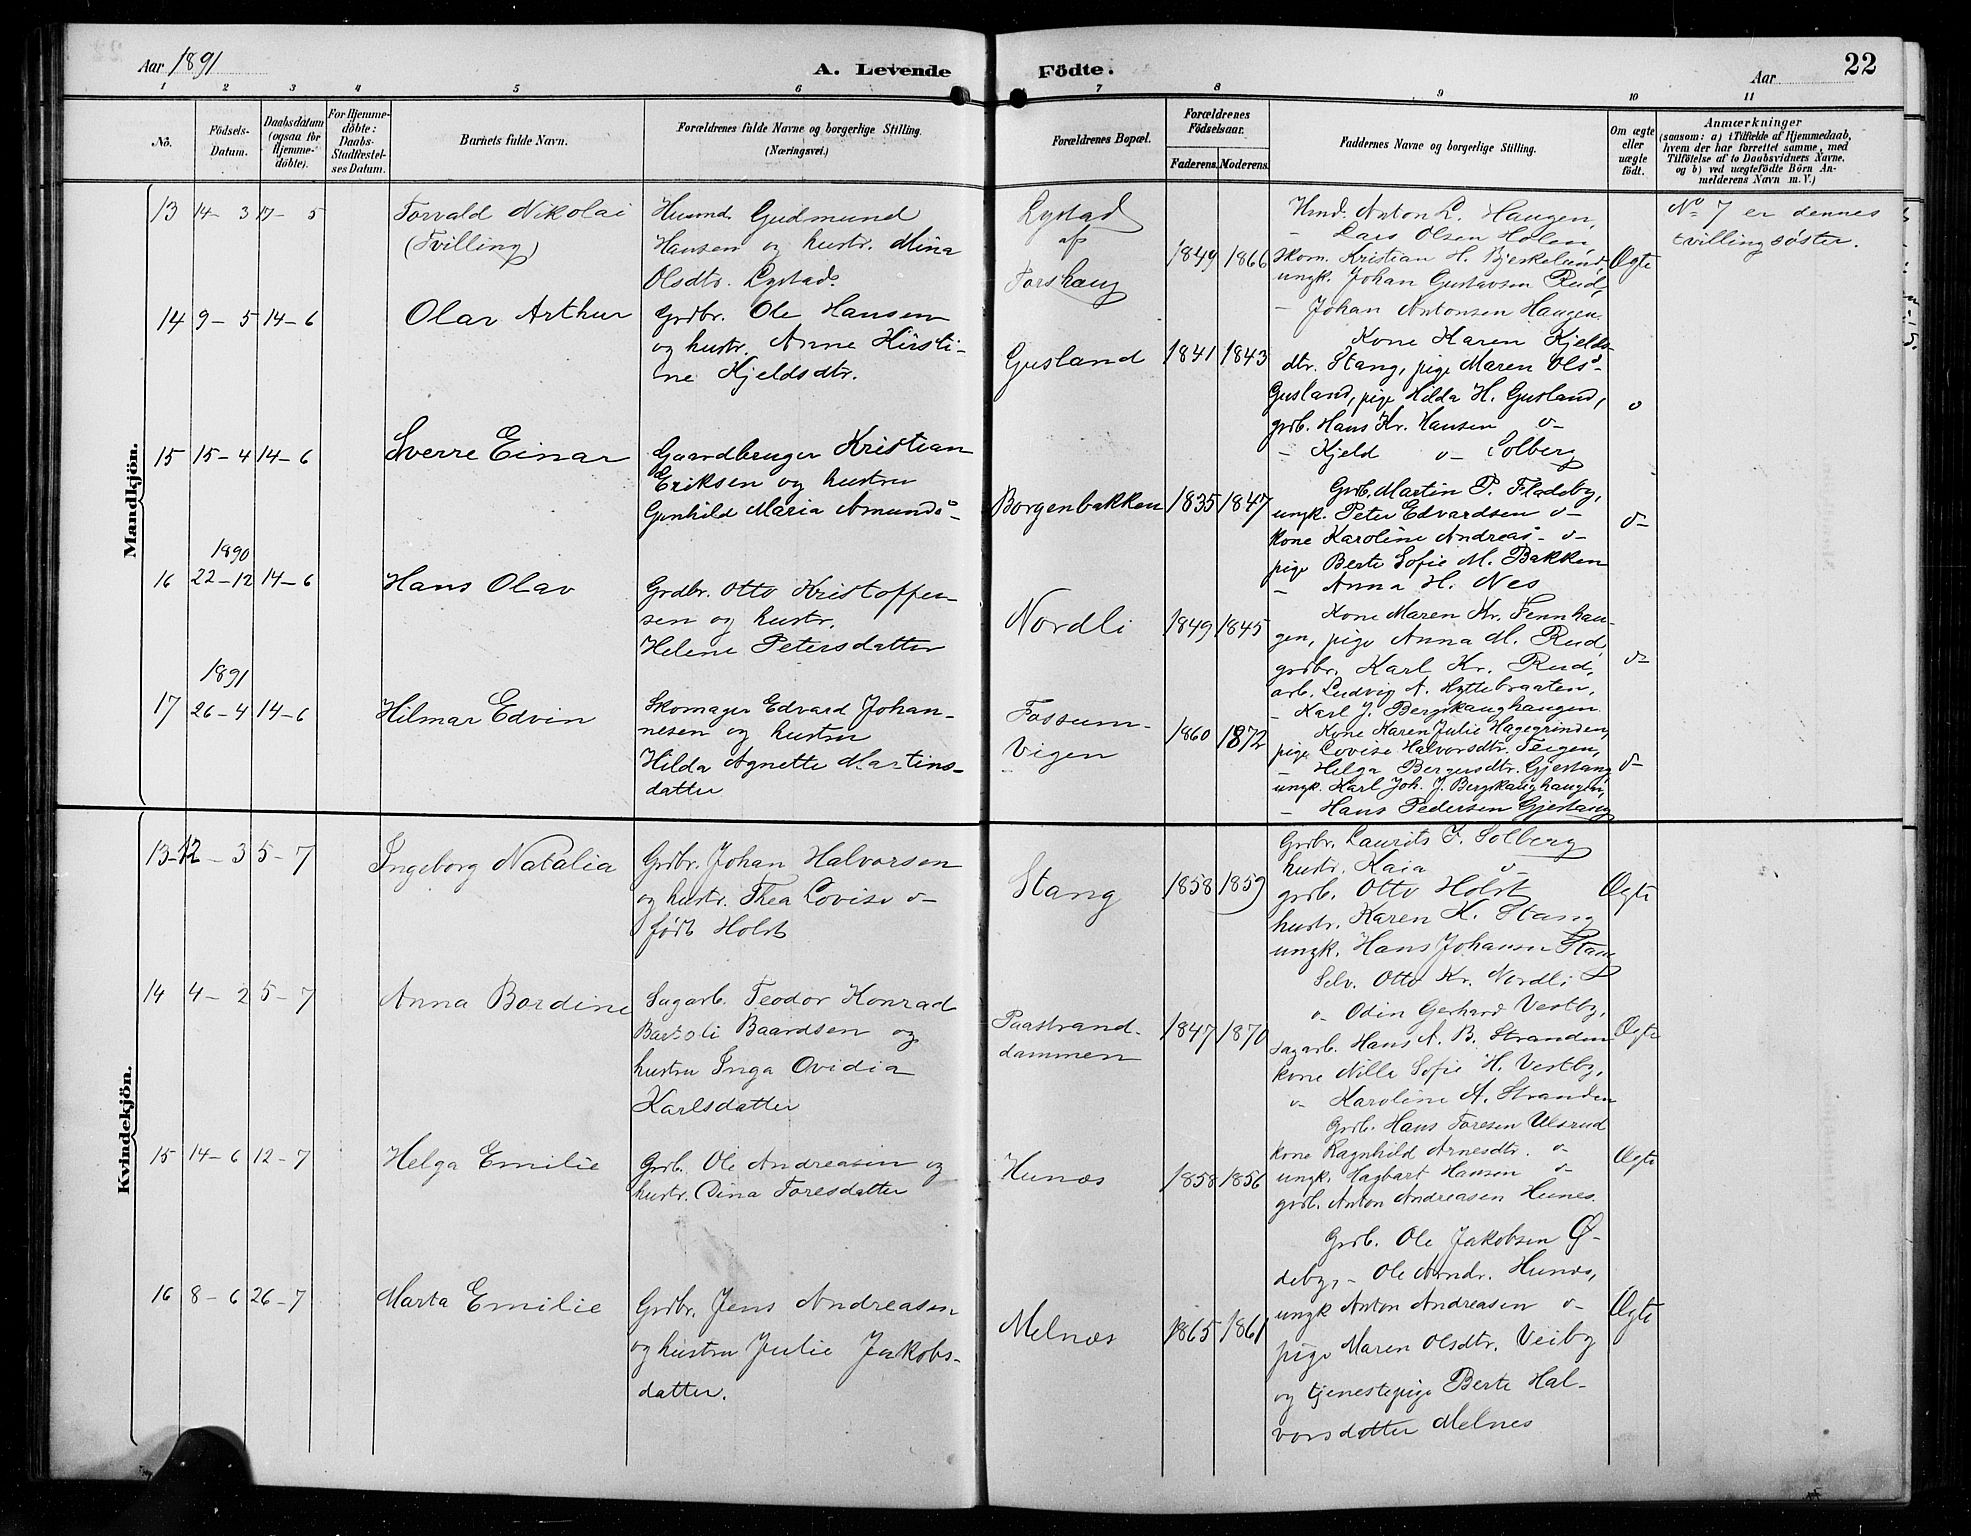 Aar 1891
A. Levende Födte.
Aar
22
1 2 3 4 5 6 7 8 9 10 11
No.
Födsels-
Datum.
Daabsdatum
(ogsaa for
Hjemme-
döbte).
For Hjemme-
döbte:
Daabs-
Stadfæstel-
ses Datum.
Barnets fulde Navn.
Forældrenes fulde Navne og borgerlige Stilling.
(Næringsvei.)
Forældrenes Bopæl.
Forældrenes
Födselsaar.
Faderens. Moderens.
Faddernes Navne og borgerlige Stilling.
Om ægte
eller
uægte
födt.
Anmærkninger
(saasom: a) i Tilfælde af Hjemmedaab,
hvem der har forrettet samme, med
Tilföielse af to Daabsvidners Navne.
og b) ved uægtefödte Börn An-
melderens Navn m. V.)
Mandkjön.
13 14-3 17-5
Torvald Nikolai
(Tvilling)
Husmd. Gudmund
Hansen og hustr. Mina
Olsdtr. Lystad.
Lystad
afs
Forshaug
1849 1866
Hmd. Anton L. Haugen,
- Lars Olsen Holen,
skom. Kristian H. Bjerkelund,
ungk. Johan Gustavsen Rud,
- Johan Antonsen Haugen.
Ægte
No 7 er dennes
tvillingsöster.
14 9-5 14-6
Olav Arthur
Grdbr. Ole Hansen
og hustr. Anne Kirsti-
ne Kjeldsdtr.
Gusland
1841 1843
Kone Karen Kjelds-
dtr. Stang, pige Maren Ols-
Gusland, pige Hilda H. Gusland,
grdb. Hans Kr. Hansen o-
- Kjeld o- Solberg
o
15 15-4 14-6
Sverre Einar
Gaardbruger Kristian
Eriksen og hustru
Gunhild Maria Amunds-
Borgenbakken
1835 1847
Grdb. Martin P. Fladeby,
ungk. Peter Edvardsen o-
kone Karoline Andreas- o-
pige Berte Sofie M. Bakken
- Anna H. Nes
o-
1890
16 22-12 14-6
Hans Olav
Grdbr. Otto Kristoffer
sen og hustr.
Helene Petersdatter
Nordli
1849 1845
Kone Maren Kr. Fennhau-
gen, pige Anna M. Rud,
grdbr. Karl Kr. Rud,
arb. Ludvig A. Hyttebraaten,
- Karl J. Bergskaughaugen.
o-
1891
17 26-4 14-6
Hilmar Edvin
Skomager Edvard Johan-
nesen og hustru
Hilda Agnette Martins-
datter
Fossum-
vigen
1860 1872
Kone Karen Julie Hagegrinden,
pige Lovise Halvorsdtr. Teigen,
- Helga Bergersdtr. Gjerstang
ungk. Karl Joh. J. Bergskaughaugen,
- Hans Pedersen Gjerstang
o-
Kvindekjön.
13 12-3 5-7
Ingeborg Natalia
Grdbr. Johan Halvorsen
og hustr. Thea Lovise o-
född Holst
Stang
1858 1859
Grdbr. Laurits J. Solberg
hustr. Kaia o-
grdb. Otto Holst
hustr. Karen K. Stang
ungk. Hans Johansen Stan
Ægte
14 4-2 5-7
Anna Bordine
Sagarb. Teodor Konrad
Bartoli Baardsen og
hustru Inga Ovidia
Karlsdatter
Paastrand-
dammen
1847 1870
Selv. Otto Kr. Nordli
o- Odin Gerhard Vestby,
sagarb. Hans A. B. Stranden
kone Nilla Sofie H. Vestby,
o- Karoline A. Stranden
Ægte
15 14-6 12-7
Helga Emilie
Grdb. Ole Andreasen og
hustr. Dina Toresdatter
Hunæs
1858 1856
Grdb. Hans Toresen Ulsrud
kone Ragnhild Arnesdtr. o-
ungk. Hagbart Hansen o-
grdb. Anton Andreasen Hunes.
Ægte
16 8-6 26-7
Marta Emilie
Grdbr. Jens Andreasen
og hustru Julie Jakobs-
datter.
Melnæs
1865 1861
Grdb. Ole Jakobsen Ø-
deby, - Ole Andr. Hunæs,
ungk Anton Andreasen o-
pige Maren Olsdtr. Veiby
og tjenestepige Berte Hal-
vorsdatter Melnes
Ægte